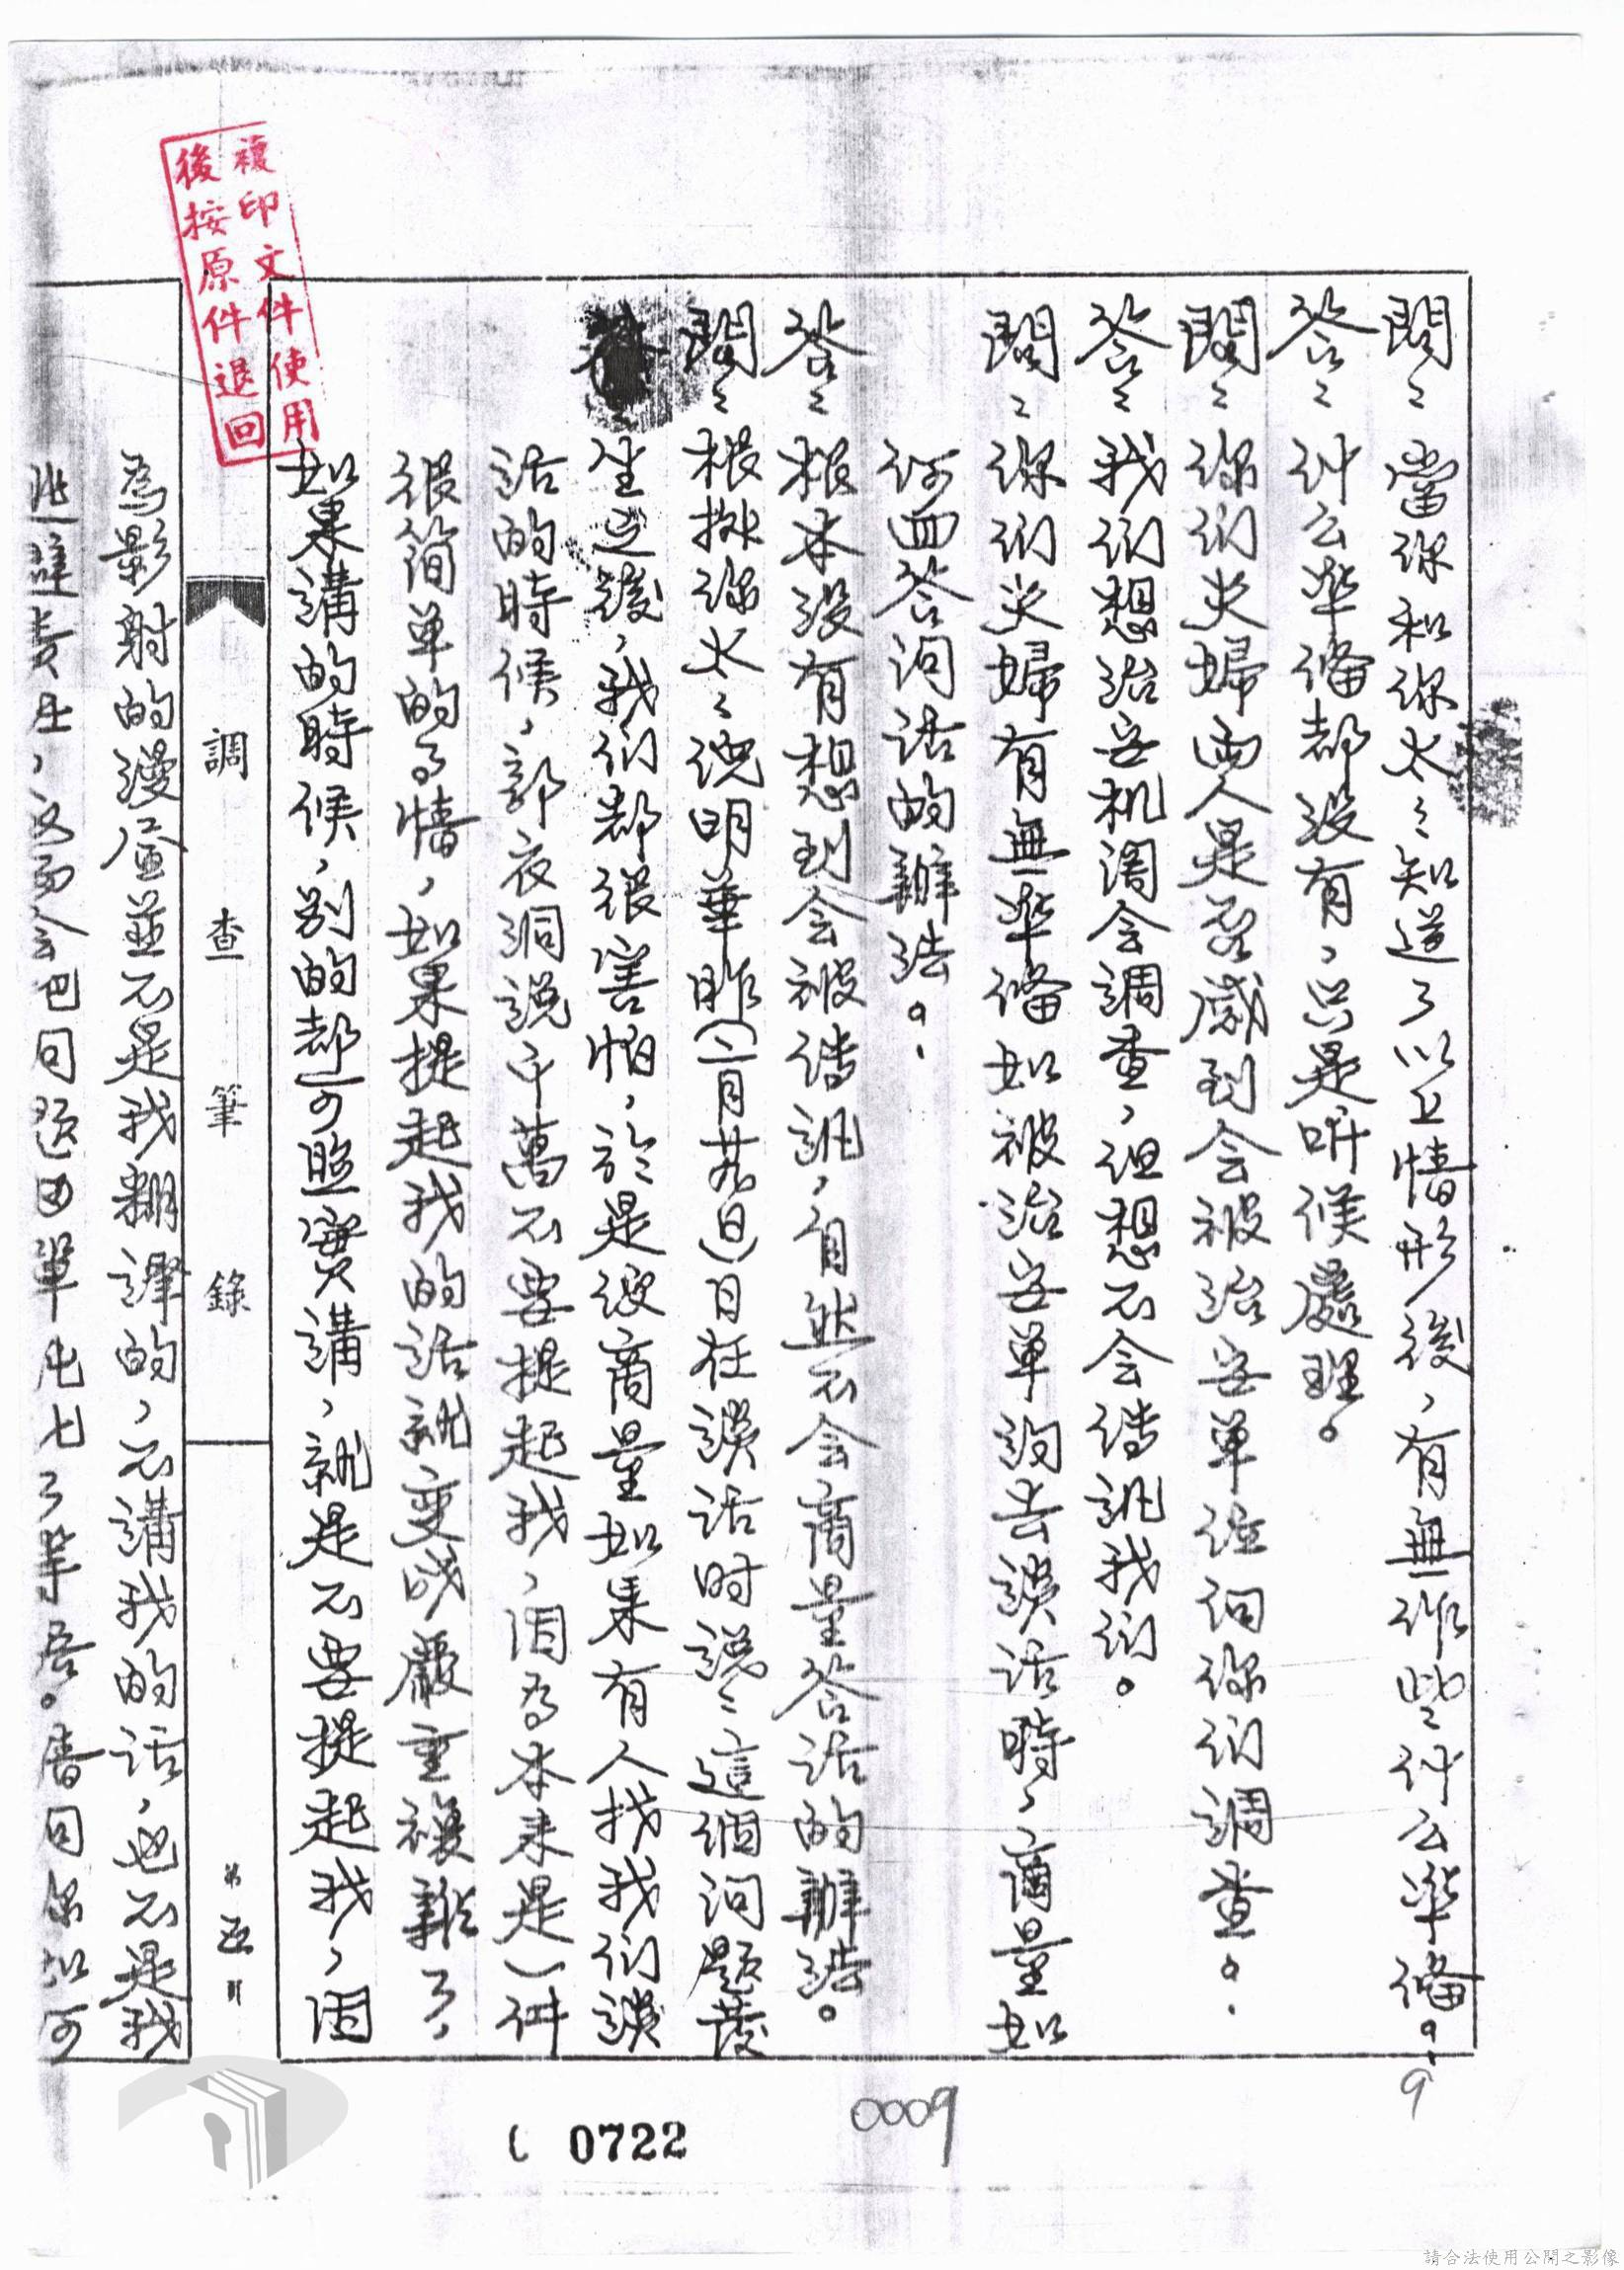 問：當你和你太太知道了以上情形後，有無作些什么準備。
答：什么準備都没有，只是听候處理。
問：你们夫婦両人是否感到会被治安单位问你们調查。
答：我们想治安机関会調查，但想不会傳訊我们。
問：你们夫婦有無準备如被治安单位約去談话時，商量如
何回答问话的辦法。
答：根本没有想到会被傳訊，自然不会商量答话的辦法。
問：根據你太太说明華昨(二月廿九日)日在談话时说：這個问題發
生之後，我们都很害怕，於是彼商量如果有人找我们談
话的時候，郭衣洞說千萬不要提起我，因為本来是一件
很简单的事情，如果提起我的话就变成嚴重複雜了，
如果講的時候，别的都可照實講，就是不要提起我，因
為影射的漫畫並不是我翻譯的，不講我的话，也不是我
逃避責任，
調查筆錄
第 頁
複印文件使用
後按原件退回
9
0009
0722
請合法使用公開之影像